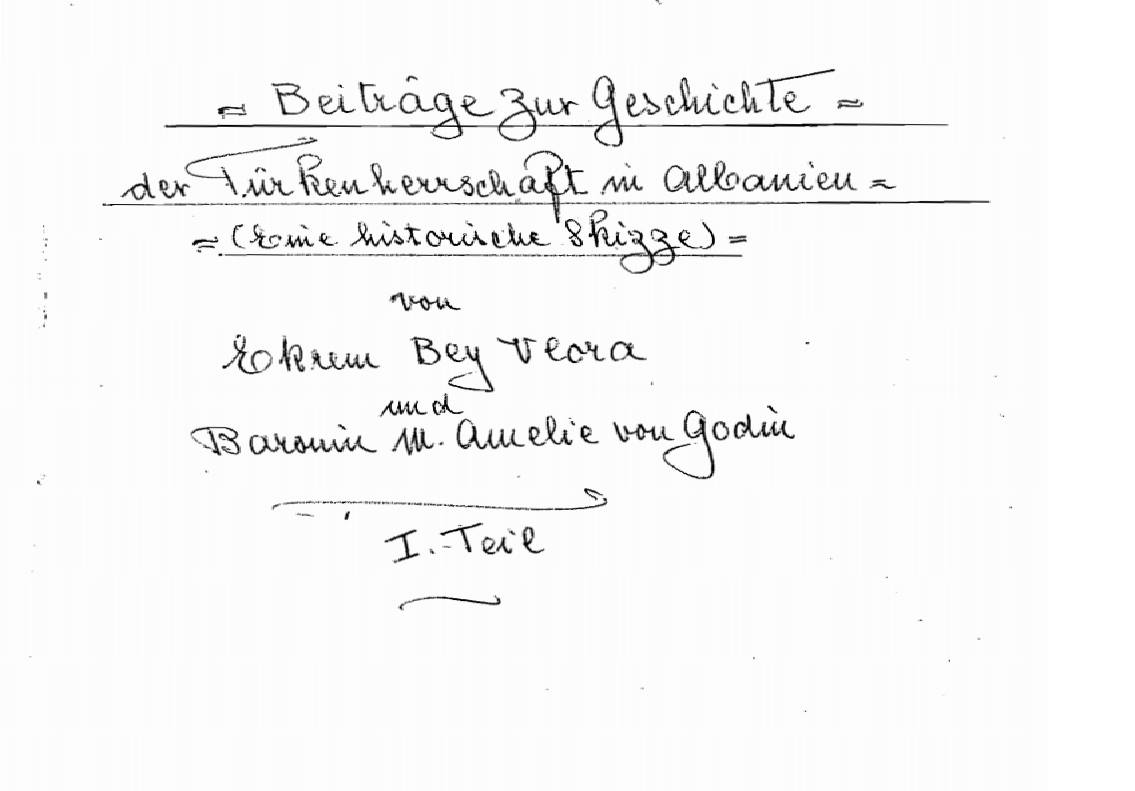 = Beiträge zur Geschichte =
der Türkenherrschaft in Albanien =
= (Eine historische Skizze) =
von
Ekrem Bey Vlora
und
Baronin M. Amelie von Godin
I. Teil